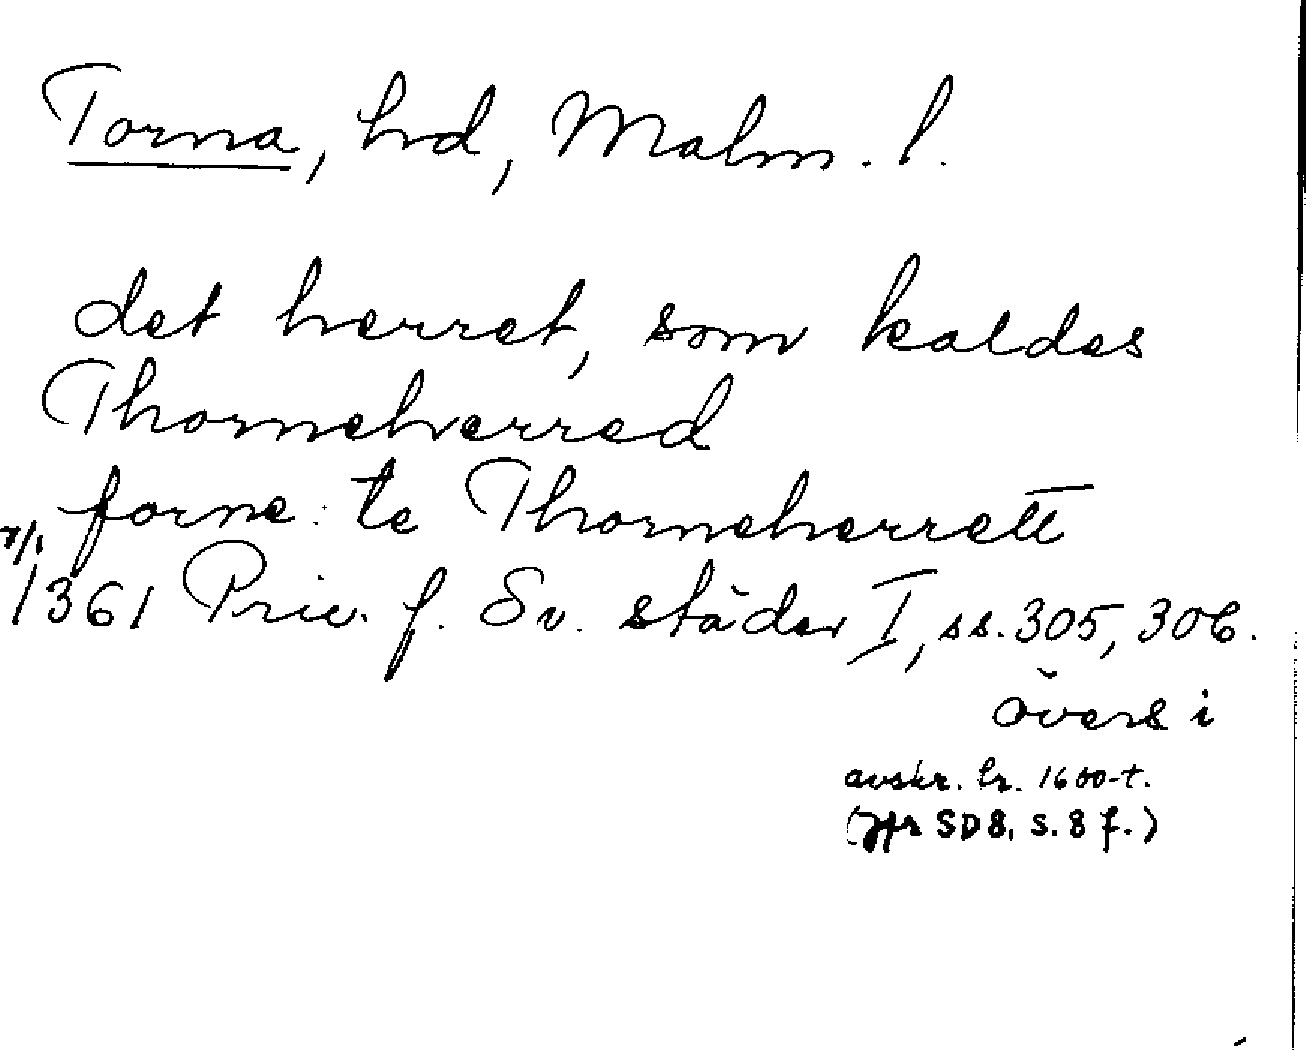 Torna, hd, Malm. l.
det herret, som kaldes
Thorneherred
forne: te Thorneherrett
7/1 1361 Priv. f. Sv. städer I, ss. 305, 306.
övers i
avskr. fr. 1600-t.
(Jfr SD 8, s. 8 f.)